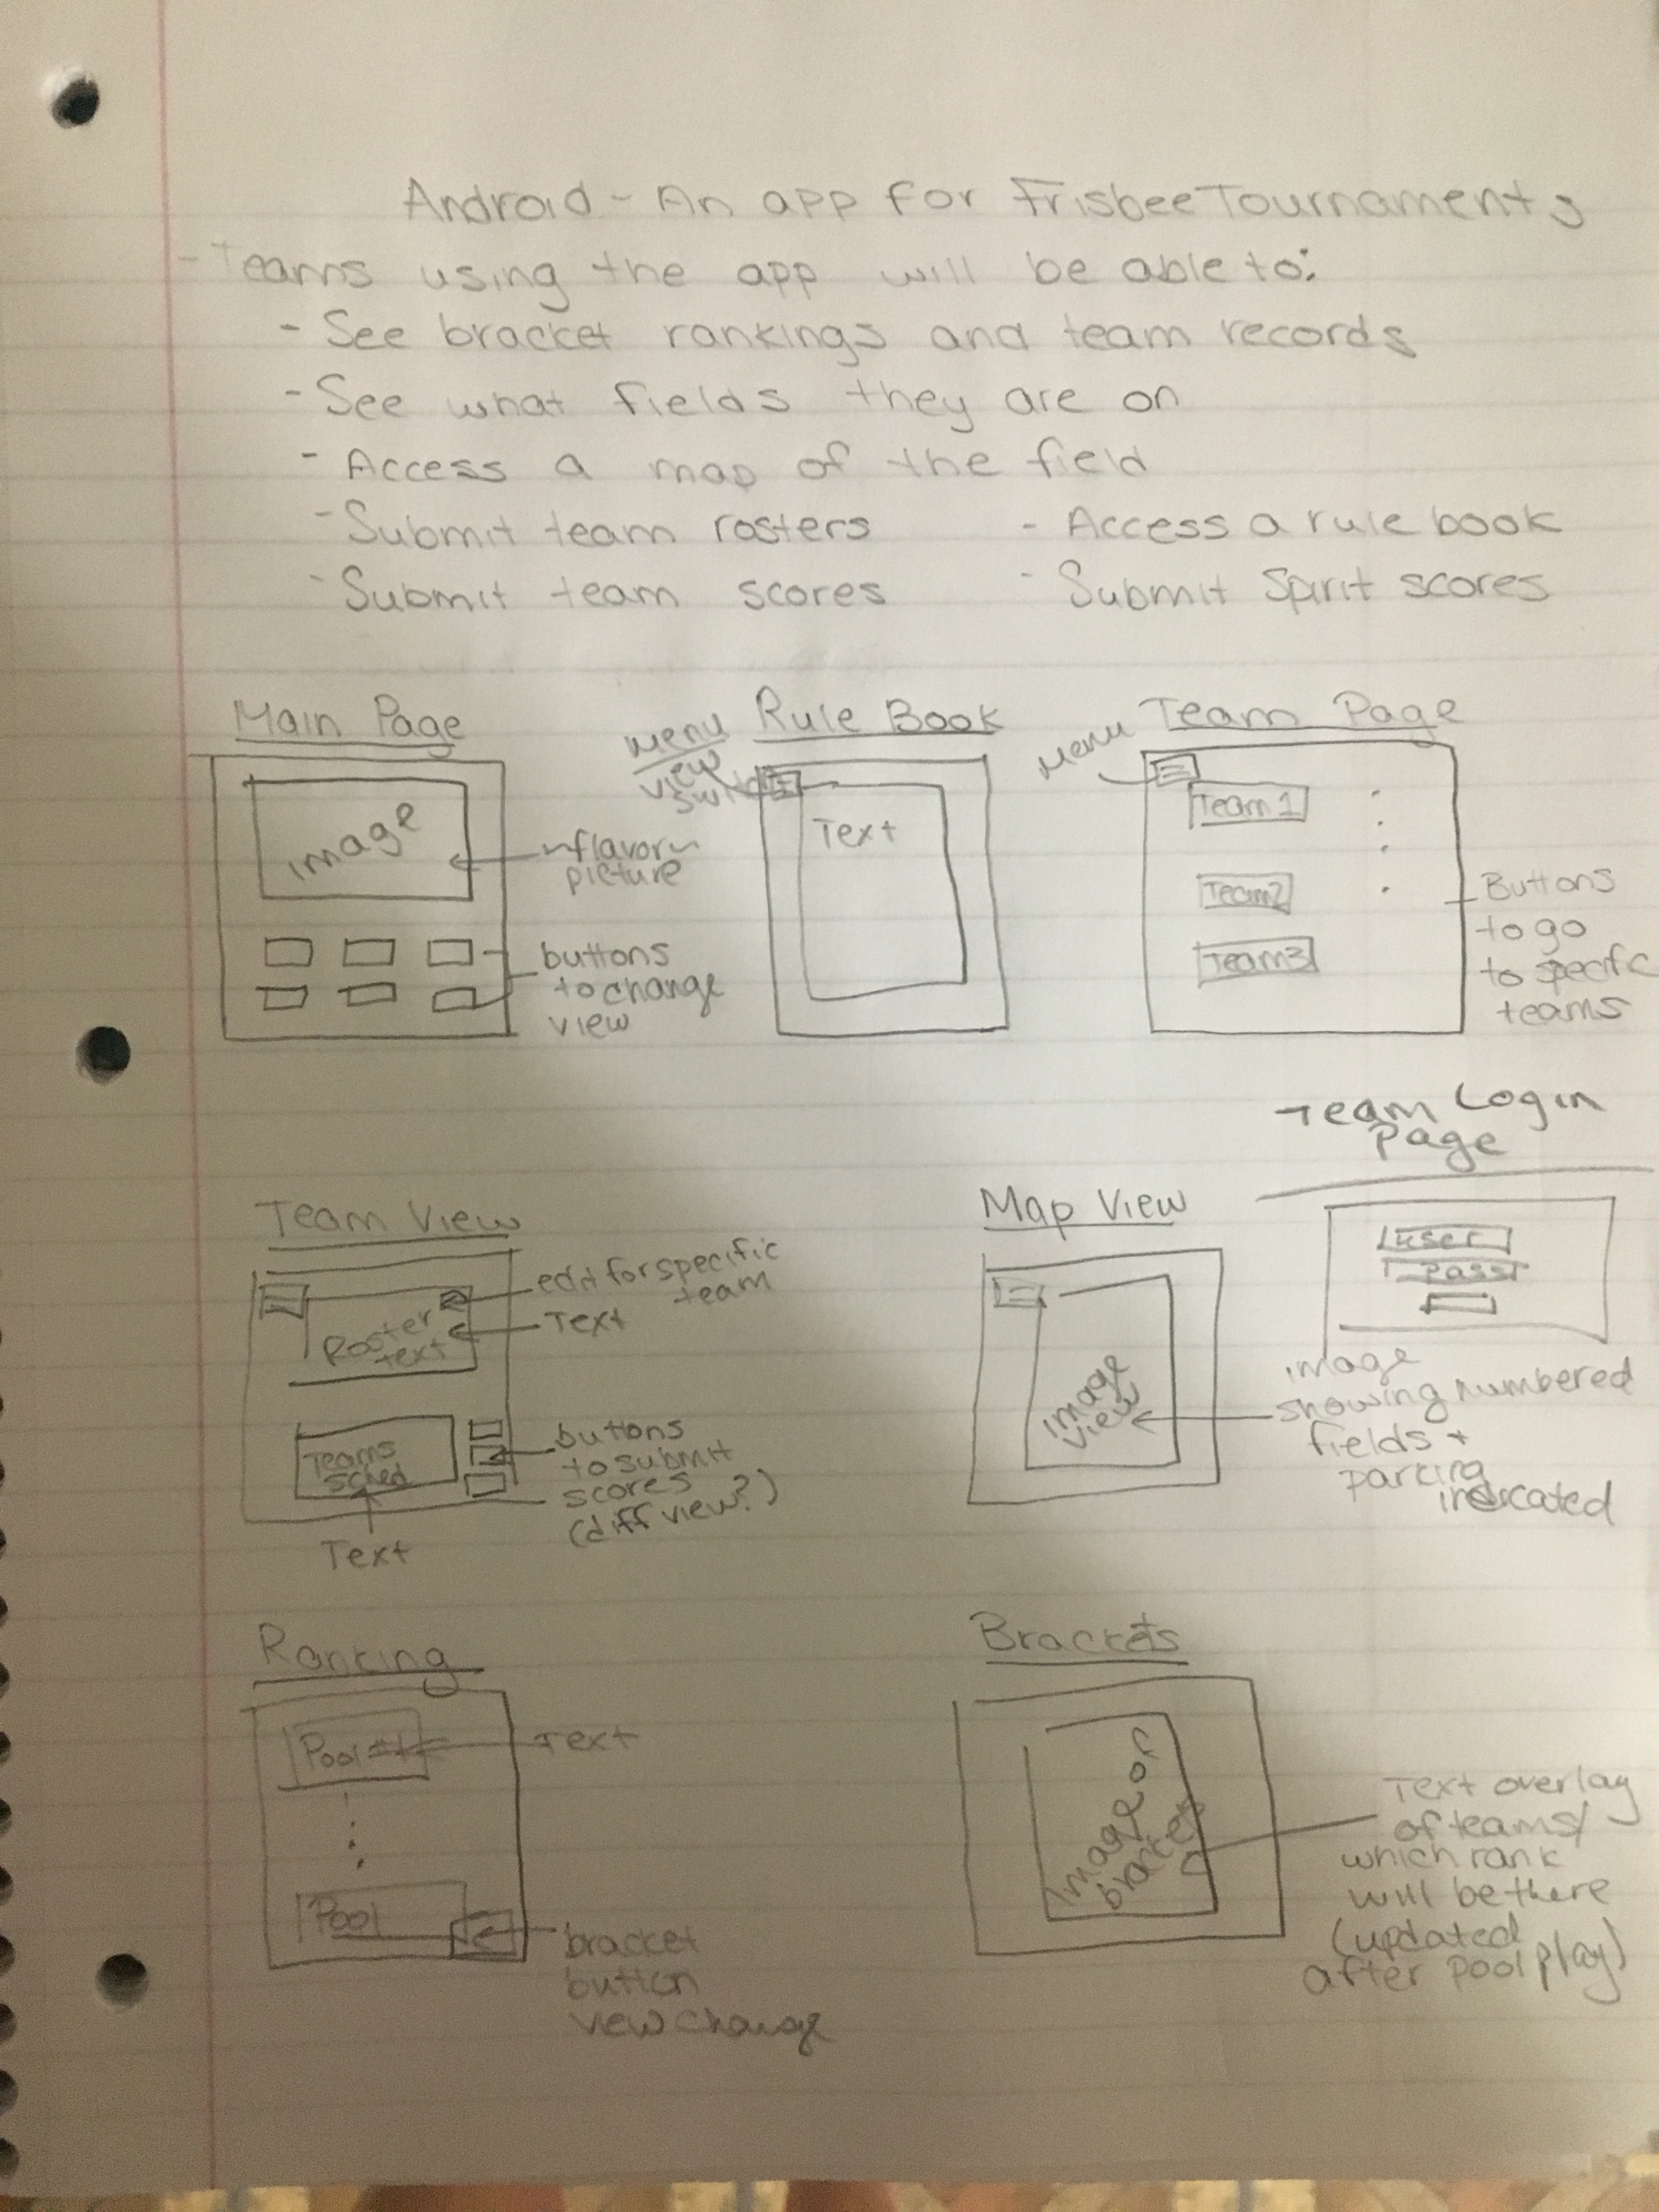 Android - An app for Frisbee Tournaments
- Teams using the app will be able to:
- See bracket rankings and team records
- See what fields they are on
- Access a map of the field
- Submit team rosters
- Access a rule book
- Submit team scores
- Submit Spirit scores
Main Page
image
~flavor~
picture
buttons
to change
view
Rule Book
Menu
view
switch
Text
Team Page
Menu
Team 1
Team2
Team3
Buttons
to go
to specific
teams
Team Login
Page
user
Pass
Team View
edit for specific
team
Roster
text
Text
Teams
sched
Text
buttons
to submit
scores
(diff view?)
Map View
image
view
image
showing numbered
fields +
parking
indicated
Ranking
Pool
Text
Pool
bracket
button
view change
Brackets
Image or
bracket
Text overlay
of teams/
which rank
will be there
(updated
after pool play)